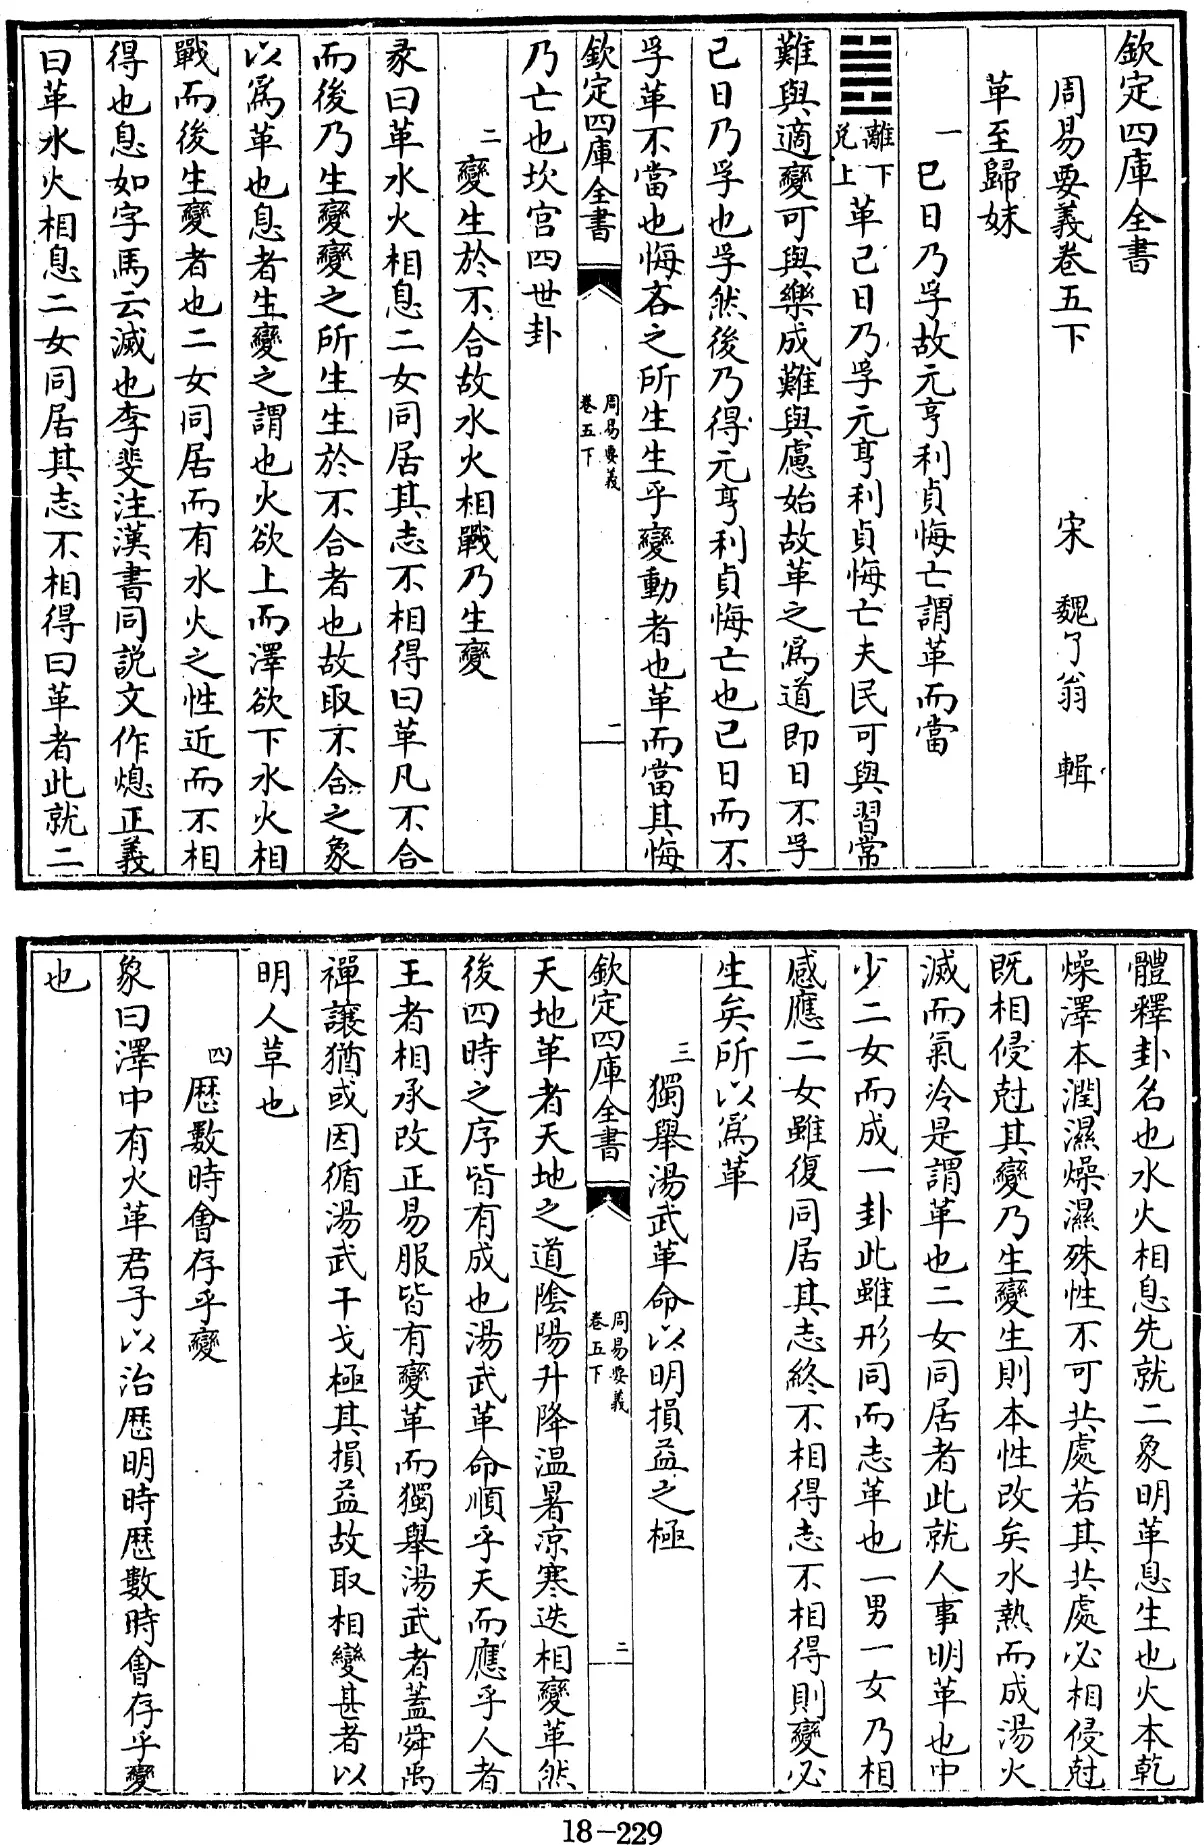 欽定四庫全書
周易要義卷五下　宋　魏了翁　輯
革至歸妹
一　已日乃孚故元亨利貞悔亡謂革而當
離下
兑上
革已日乃孚元亨利貞悔亡夫民可與習常
難與適變可與樂成難與慮始故革之為道即日不孚
已日乃孚也孚然後乃得元亨利貞悔亡也已日而不
孚革不當也悔吝之所生生乎變動者也革而當其悔
欽定四庫全書
周易要義
卷五下
一
乃亡也坎宫四世卦
二　變生於不合故水火相戰乃生變
彖曰革水火相息二女同居其志不相得曰革凡不合
而後乃生變變之所生生於不合者也故取不合之象
以為革也息者生變之謂也火欲上而澤欲下水火相
戰而後生變者也二女同居而有水火之性近而不相
得也息如字馬云滅也李斐注漢書同説文作熄正義
曰革水火相息二女同居其志不相得曰革者此就二
體釋卦名也水火相息先就二象明革息生也火本乾
燥澤本潤濕燥濕殊性不可共處若其共處必相侵尅
既相侵尅其變乃生變生則本性改矣水熱而成湯火
滅而氣冷是謂革也二女同居者此就人事明革也中
少二女而成一卦此雖形同而志革也一男一女乃相
感應二女雖復同居其志終不相得志不相得則變必
生矣所以為革
三　獨舉湯武革命以明損益之極
欽定四庫全書
周易要義
卷五下
二
天地革者天地之道陰陽升降温暑凉寒迭相變革然
後四時之序皆有成也湯武革命順乎天而應乎人者
王者相承改正易服皆有變革而獨舉湯武者蓋舜禹
禪讓猶或因循湯武干戈極其損益故取相變甚者以
明人革也
四　歴數時會存乎變
象曰澤中有火革君子以治歴明時歴數時會存乎變
也
18-229